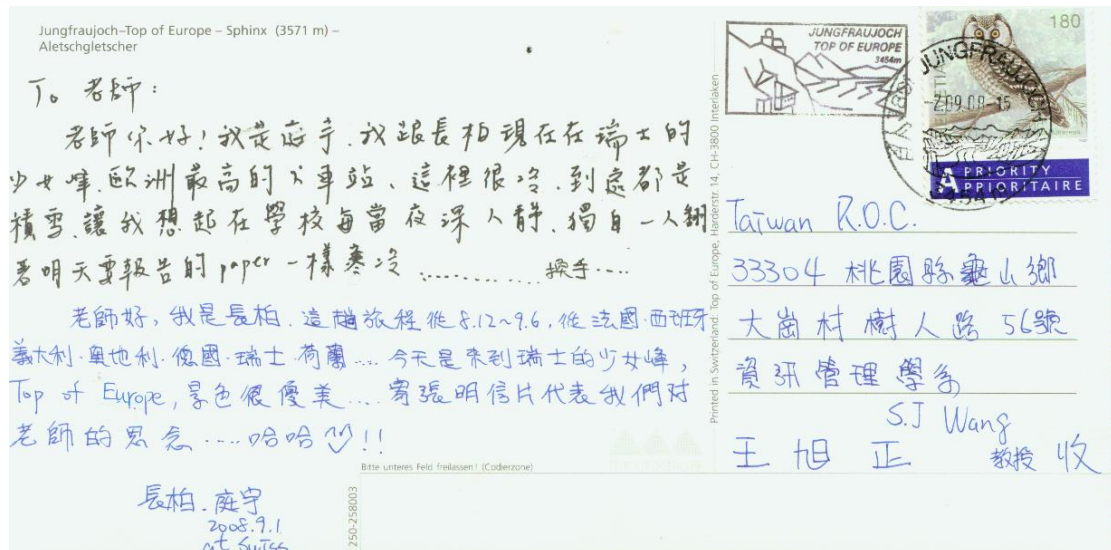 Jungfraujoch–Top of Europe – Sphinx (3571 m) –
Aletschgletscher
To 老師：
老師你好！我是庭宇．我跟長柏現在在瑞士的
少女峰．歐洲最高的火車站、這裡很冷．到處都是
積雪．讓我想起在學校每當夜深人靜．獨自一人翻
著明天要報告的 paper 一樣寒冷 ............ 換手....
老師好，我是長柏．這趟旅程從8.12~9.6，從法國·西班牙
義大利·奧地利·德國·瑞士·荷蘭.... 今天是來到瑞士的少女峰，
Top of Europe，景色很優美.... 寄張明信片代表我們对
老師的思念....哈哈!!
長柏．庭宇
2008.9.1
at Swiss
Bitte unteres Feld freilassen! (Codierzone)
250-258003
Printed in Switzerland: Top of Europe, Harderstr. 14, CH-3800 Interlaken
JUNGFRAUJOCH
TOP OF EUROPE
3454m
180
JUNGFRAUJOCH
09.08-15
A PRIORITY
PRIORITAIRE
Taiwan R.O.C.
33304 桃園縣龜山鄉
大崗村樹人路 56號
資訊管理學系
S.J Wang
王旭正 教授 收